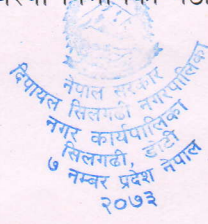 नेपाल सरकार
दिपायल सिलगढी नगरपालिका
नगर कार्यपालिका
सिलगढी, डोटी
७ नम्बर प्रदेश नेपाल
२०७३